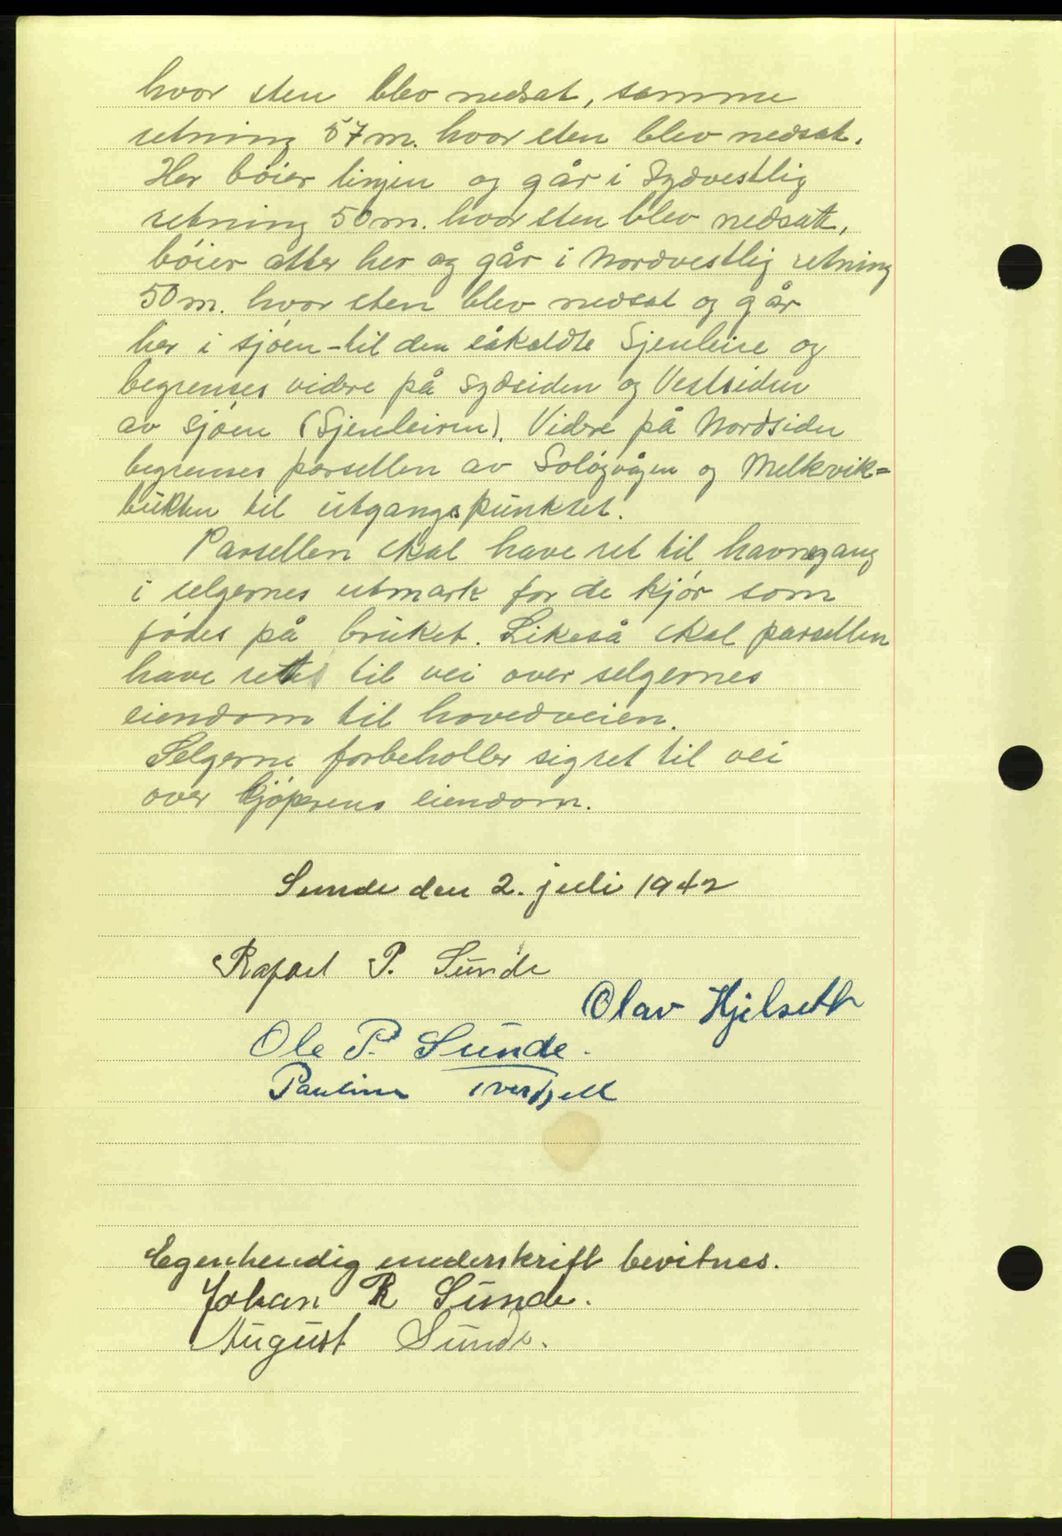 hvor sten blev nedsat, samme
retning 57 m. hvor sten blev nedsat.
Her bøier linjen og går i Sydvestlig
retning 50 m. hvor sten blev nedsatt,
bøier atter her og går i Nordvestlig retning
50 m. hvor sten blev nedsat og går
her i sjøen - til den såkaldte Sjenleire og
begrenses videre på sydsiden og Vestsiden
av sjøen (Sjenleiren). Videre på Nordsiden
begrenses parsellen av Soløgvågen og Melkvik=
bukten til utgangspunktet.
Parsellen skal have ret til havnegang
i selgernes utmark for de kjør som
fødes på bruket. Likeså skal parsellen
have rett til vei over selgernes
eiendom til hovedveien.
Selgerne forbeholler sig ret til vei
over kjøperens eiendom.
Sunde den 2. juli 1942
Rafael P. Sunde
Olav Hjelseth
Ole P. Sunde.
Pauline Iversjell
Egenhendig underskrift bevitnes.
Johan R Sunde.
August Sunde.